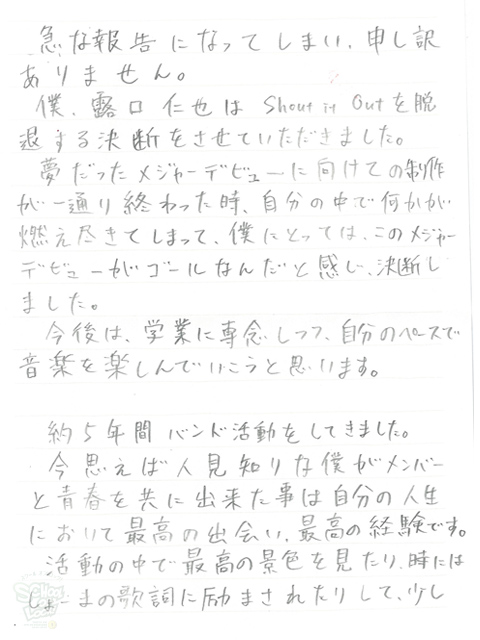 急な報告になってしまい、申し訳
ありません。
僕、露口仁也は Shout it Outを脱
退する決断をさせていただきました。
夢だったメジャーデビューに向けての制作
が一通り終わった時、自分の中で何かが
燃え尽きてしまって、僕にとっては、このメジャー
デビューがゴールなんだと感じ、決断し
ました。
今後は、学業に専念しつつ、自分のペースで
音楽を楽しんでいこうと思います。
約5年間バンド活動をしてきました。
今思えば人見知りな僕がメンバー
と青春を共に出来た事は自分の人生
において最高の出会い、最高の経験です。
活動の中で最高の景色を見たり、時には
しょーまの歌詞に励まされたりして、少し